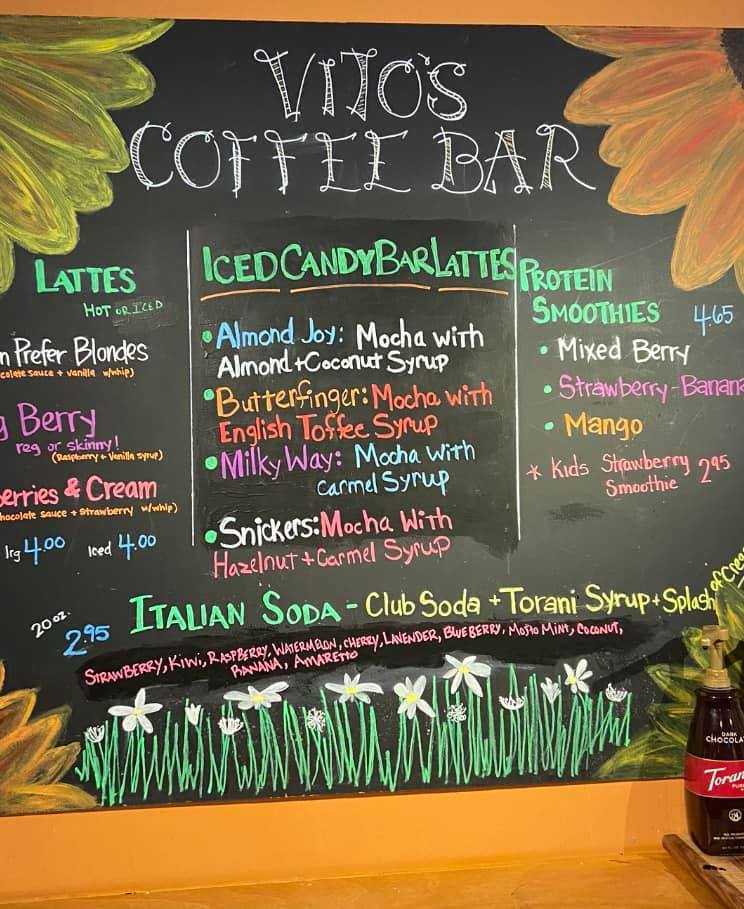 VITO'S
COFFEE BAR
LATTES
HOT OR ICED
Prefer Blondes
sauce + vanilla w/whip)
Berry
reg or skinny!
(Raspberry + Vanilla syrup)
& Cream
sauce + strawberry w/whip)
lrg 4.00 iced 4.00
ICED CANDY BAR LATTES
• Almond Joy: Mocha with
Almond + Coconut Syrup
• Butterfinger: Mocha with
English Toffee Syrup
• Milky Way: Mocha with
Carmel Syrup
• Snickers: Mocha With
Hazelnut + Carmel Syrup
PROTEIN
SMOOTHIES 4.65
• Mixed Berry
• Strawberry-Banan
• Mango
* Kids Strawberry 2.95
Smoothie
20 oz.
2.95
ITALIAN SODA - Club Soda + Torani Syrup + Splash of
STRAWBERRY, KIWI, RASPBERRY, WATERMELON, CHERRY, LAVENDER, BLUEBERRY, MOJIO MINT, COCONUT,
BANANA, AMARETTO
DARK
CHOCOLA
Toran